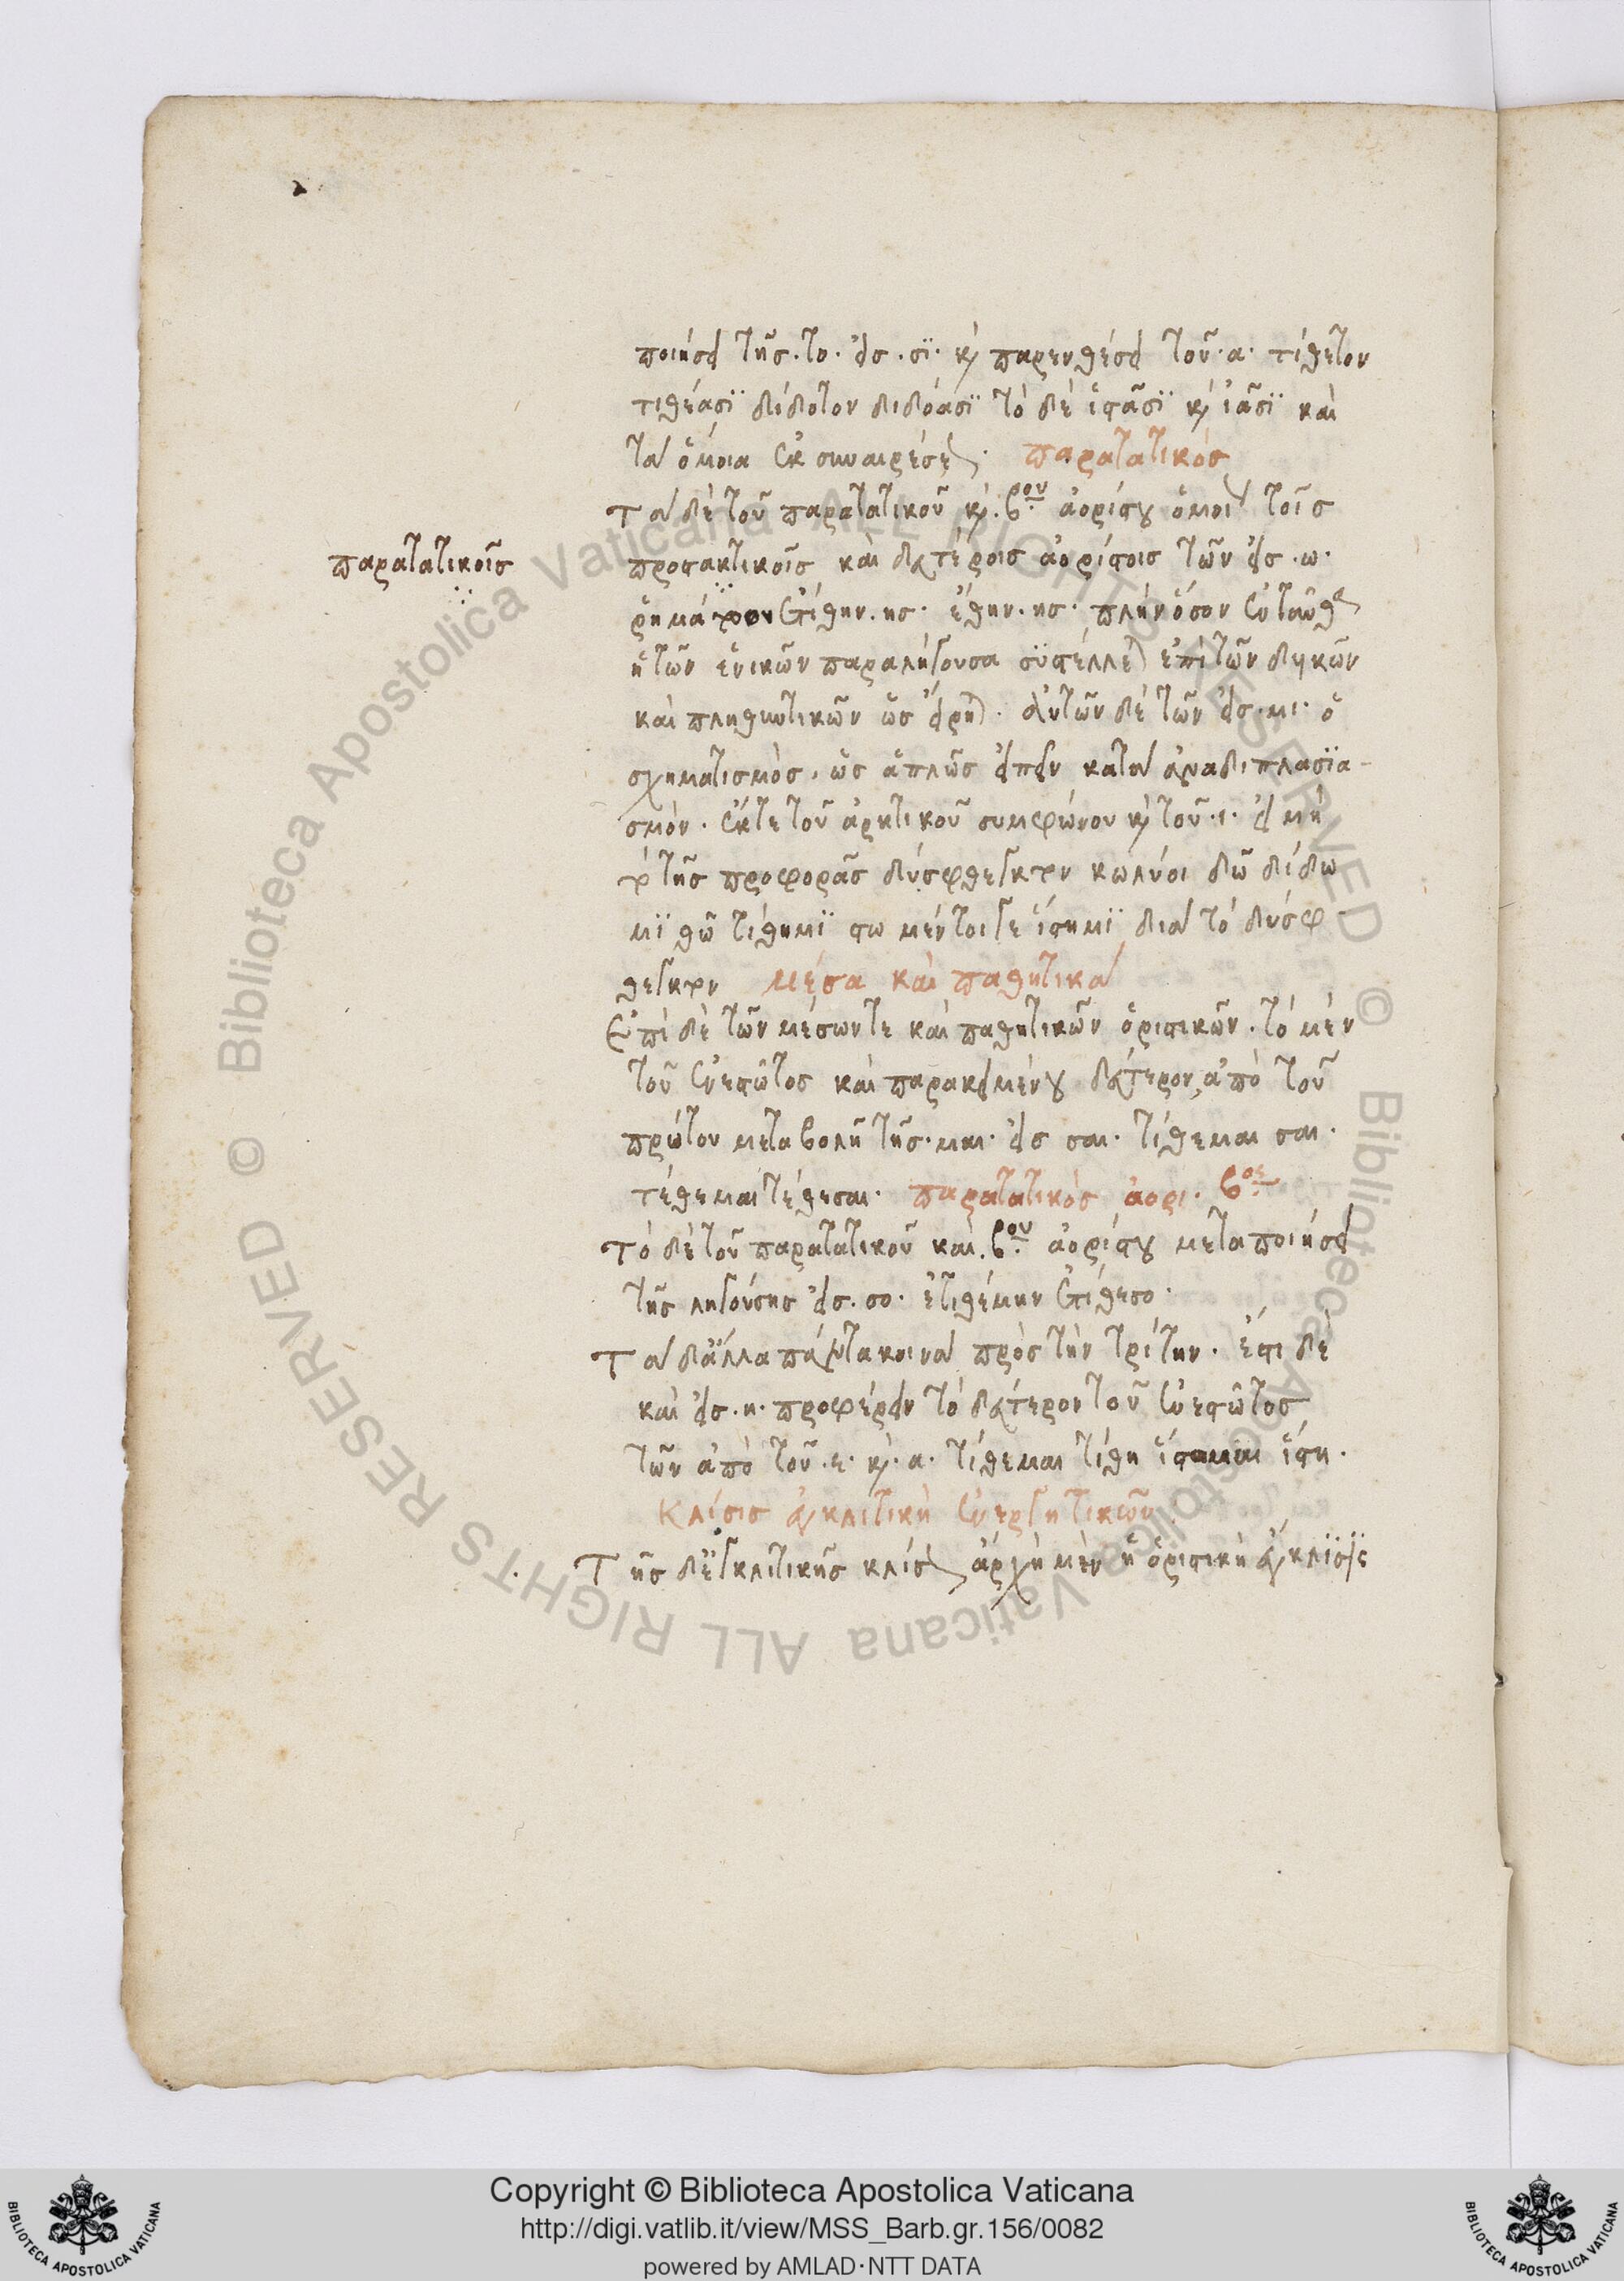 ποιήσει τῆς. το. εἰς. σϊ. καὶ παρενθέσει τοῦ. α. τίθετον
τιθέασϊ δίδοτον διδόασϊ τὸ δὲ ἱστᾶσϊ καὶ ἱᾶσϊ καὶ
τὰ ὅμοια ἐκ συναιρέσεως. παρατατικός
Τὰ δὲ τοῦ παρατατικοῦ καὶ. βου ἀορίστου ὅμοια τοῖς
παρατατικοῖς
προστακτικοῖς καὶ δευτέροις ἀορίστοις τῶν εἰς. ω.
ῥημάτων ἐτίθην. ης. ἔθην. ης. πλὴν ὅσον ἐνταῦθα
ἡ τῶν ἑνικῶν παραλήγουσα συστέλλεται ἐπὶ τῶν δυικῶν
καὶ πληθυντικῶν ὡς εἴρηται. αὐτῶν δὲ τῶν εἰς. μι. ὁ
σχηματισμὸς. ὡς ἁπλῶς εἰπεῖν κατὰ ἀναδιπλασϊα-
σμόν. ἔκ τε τοῦ ἀρκτικοῦ συμφώνου καὶ τοῦ. ι. εἰ μὴ
τὸ τῆς προφορᾶς δύσφθεγκτον κωλύοι δῶ δίδω
μϊ θῶ τίθημϊ στῶ μέντοιγε ἵστημϊ διὰ τὸ δύσφ
θεγκτον μέσα καὶ παθητικά
Ἐπὶ δὲ τῶν μέσων τε καὶ παθητικῶν ὁριστικῶν. τὸ μὲν
τοῦ ἐνεστῶτος καὶ παρακειμένου δεύτερον, ἀπὸ τοῦ
πρώτου μεταβολῇ τῆς. μαι. εἰς σαι. τίθεμαι σαι.
τέθεμαι τέθεσαι. παρατατικὸς ἀορι. βος
Τὸ δὲ τοῦ παρατατικοῦ καὶ. βου ἀορίστου μεταποιήσει
τῆς ληγούσης εἰς. σο. ἐτιθέμην ἐτίθεσο.
Τὰ δ' ἄλλα πάντα κοινὰ πρὸς τὴν τρίτην. ἔστι δὲ
καὶ εἰς. η. προφέρειν τὸ δεύτερον τοῦ ἐνεστῶτος
τῶν ἀπὸ τοῦ. ε. καὶ. α. τίθεμαι τίθη ἵσταμαι ἵστη.
Κλίσις ἐγκλιτικὴ ἐνεργητικῶν
Τῆς δὲ ἐγκλιτικῆς κλίσεως ἀρχὴ μὲν ἡ ὁριστικὴ ἔγκλϊσϊς
Copyright © Biblioteca Apostolica Vaticana
http://digi.vatlib.it/view/MSS_Barb.gr.156/0082
powered by AMLAD·NTT DATA
BIBLIOTECA APOSTOLICA VATICANA
BIBLIOTECA APOSTOLICA VATICANA
© Biblioteca Apostolica Vaticana ALL RIGHTS RESERVED
© Biblioteca Apostolica Vaticana ALL RIGHTS RESERVED